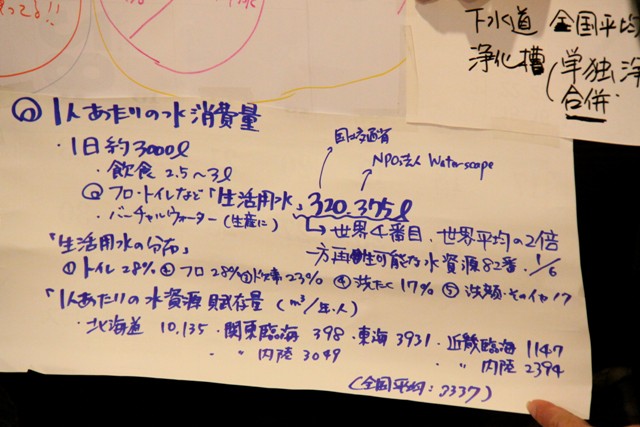 ってる!!
下水道 全国平均
浄化槽 (単独浄
合併
Q 1人あたりの水消費量
・1日約3000ℓ
・飲食 2.5〜3ℓ
国土交通省
NPO法人 Waterscape
Q フロ・トイレなど「生活用水」320.375ℓ
・バーチャルウォーター(生産に)
→世界4番目、世界平均の2倍
一方再生可能な水資源82番・1/6
「生活用水の分布」
①トイレ28% ②フロ28% ③炊事23% ④洗たく17% ⑤洗顔・その他
「1人あたりの水資源賦存量(m³/年・人)
・北海道 10,135・関東臨海 398・東海 3931・近畿臨海 1147
・〃内陸 3049 ・〃内陸 2394
(全国平均:3337)